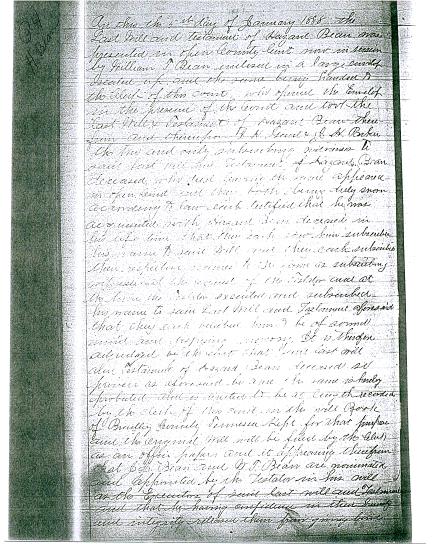 On this the 2nd day of January 1888 the
Last Will and Testament of Hazard Bean was
presented in open County Court now in session
by William T Bean enclosed in a large envelop
sealed up and the same being handed to
the Clerk of this court, who opened the Envelop
in the presence of the Court and took the
Last Will & Testament of Hazard Bean there
from and thereupon
the two and only subscribing witnesses to
said Last Will and Testament of Hazard Bean
deceased who died leaving the same appeared
in open Court and they both being duly sworn
according to law each testified that he was
acquainted with Hazard Bean deceased in
his life time that they each saw him subscribe
his name to said Will and they each subscribed
their respective names to the same as subscribing
witnesses at the request of the Testator and at
the time the Testator executed and subscribed
his name to said Last Will and Testament aforesaid
that they each believed him to be of sound
mind and disposing memory. It is therefore
adjudged by the Court that said Last Will
and Testament of Hazard Bean deceased so
proven as aforesaid be and the same is hereby
probated and is ordered to be at length recorded
by the Clerk of this Court in the Will Book
of Bradley County Tennessee kept for that purpose
and the original Will will be filed by the Clerk
as an office paper and it appearing therefrom
that Bean and W T Bean are nominated
and appointed by the Testator in his will
as the Executors of said Last Will and Testament
and that he having confidence in their honesty
and integrity released them from giving bond